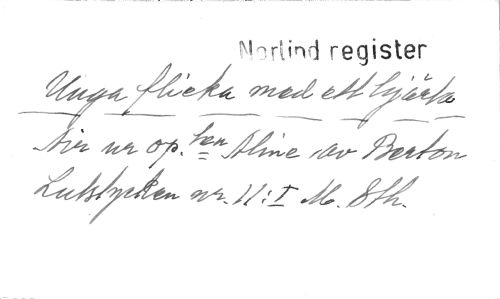 Norlind register
Unga flicka med ett hjärta
Air ur op. ten Aline av Berton
Lutstycken nr. 11:I M. Sth.